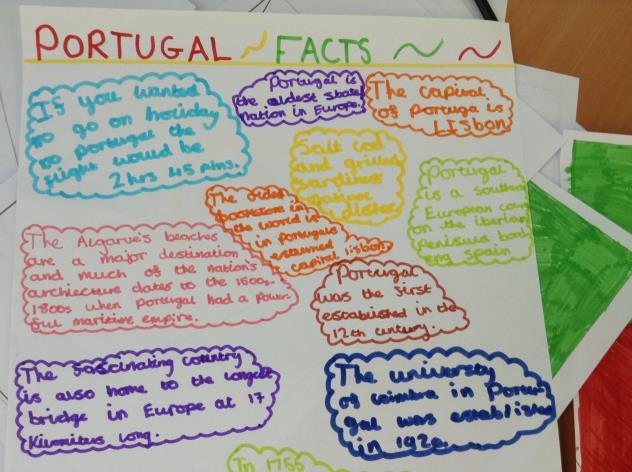 PORTUGAL FACTS
If you wanted
to go on holiday
to portugal the
flight would be
2 hrs 45 mins.
Portugal is
the oldest state
nation in Europe.
The capital
of Portuga is
LISbon
Salt cod
and grilled
sardines
are
dishes
Portugal
is a southern
European coun
on the Iberian
penisula bord
ing Spain
The oldest
bookstore in
the world is
in portugals
capital lisbon.
The Algarve's beaches
are a major destination
and much of the nation's
architecture dates to the 1500s-
1800s when Portugal had a Power-
ful maritime empire.
Portugal
was the first
established in the
12th century.
The fascinating country
is also home to the longest
bridge in Europe at 17
long.
The university
of coimbra in Portu
gal was established
in
In 1755